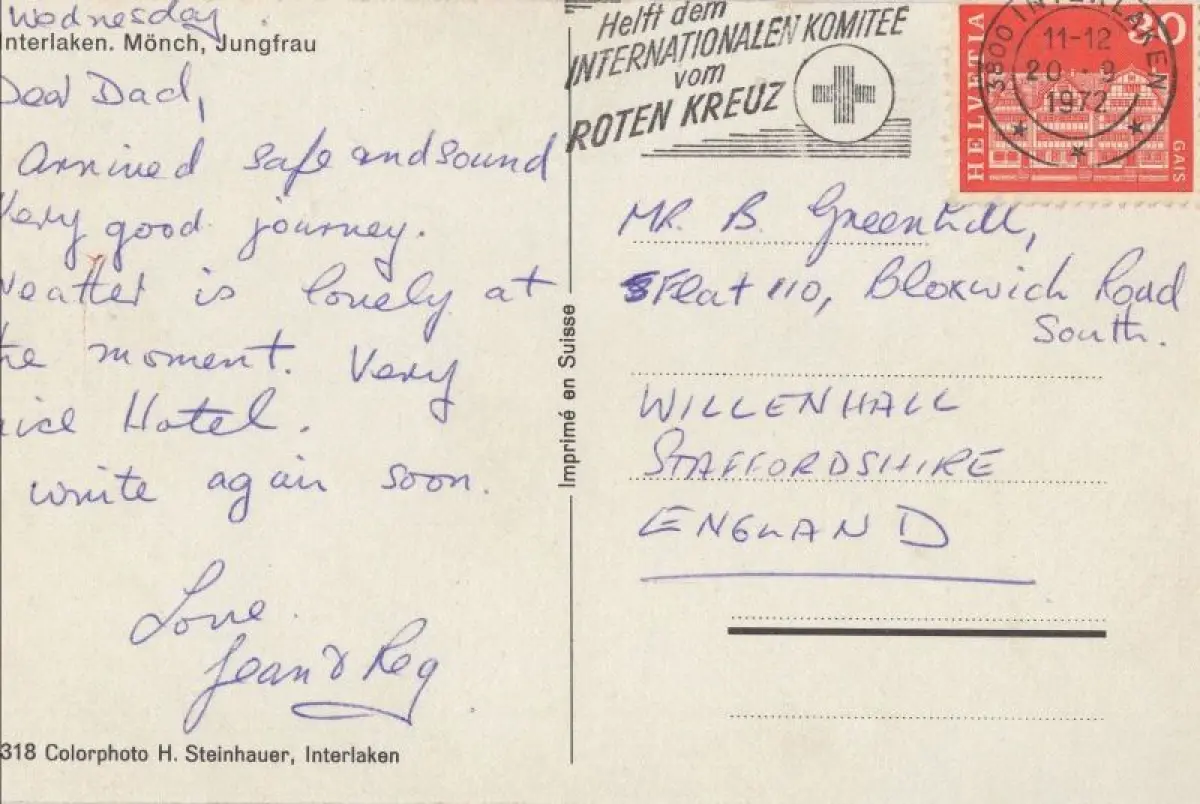 Wednesday.
Interlaken. Mönch, Jungfrau
Dear Dad,
Arrived safe and sound
Very good journey.
Weather is lovely at
the moment. Very
nice Hotel.
write again soon.
Love
Jean & Reg
318 Colorphoto H. Steinhauer, Interlaken
Imprimé en Suisse
Helft dem
INTERNATIONALEN KOMITEE
vom
ROTEN KREUZ
3800 INTERLAKEN
11-12
20 - 9
1972
HELVETIA
30
GAIS
MR. B. Greenhill,
Flat 110, Bloxwich Road
South.
WILLENHALL
STAFFORDSHIRE
ENGLAND